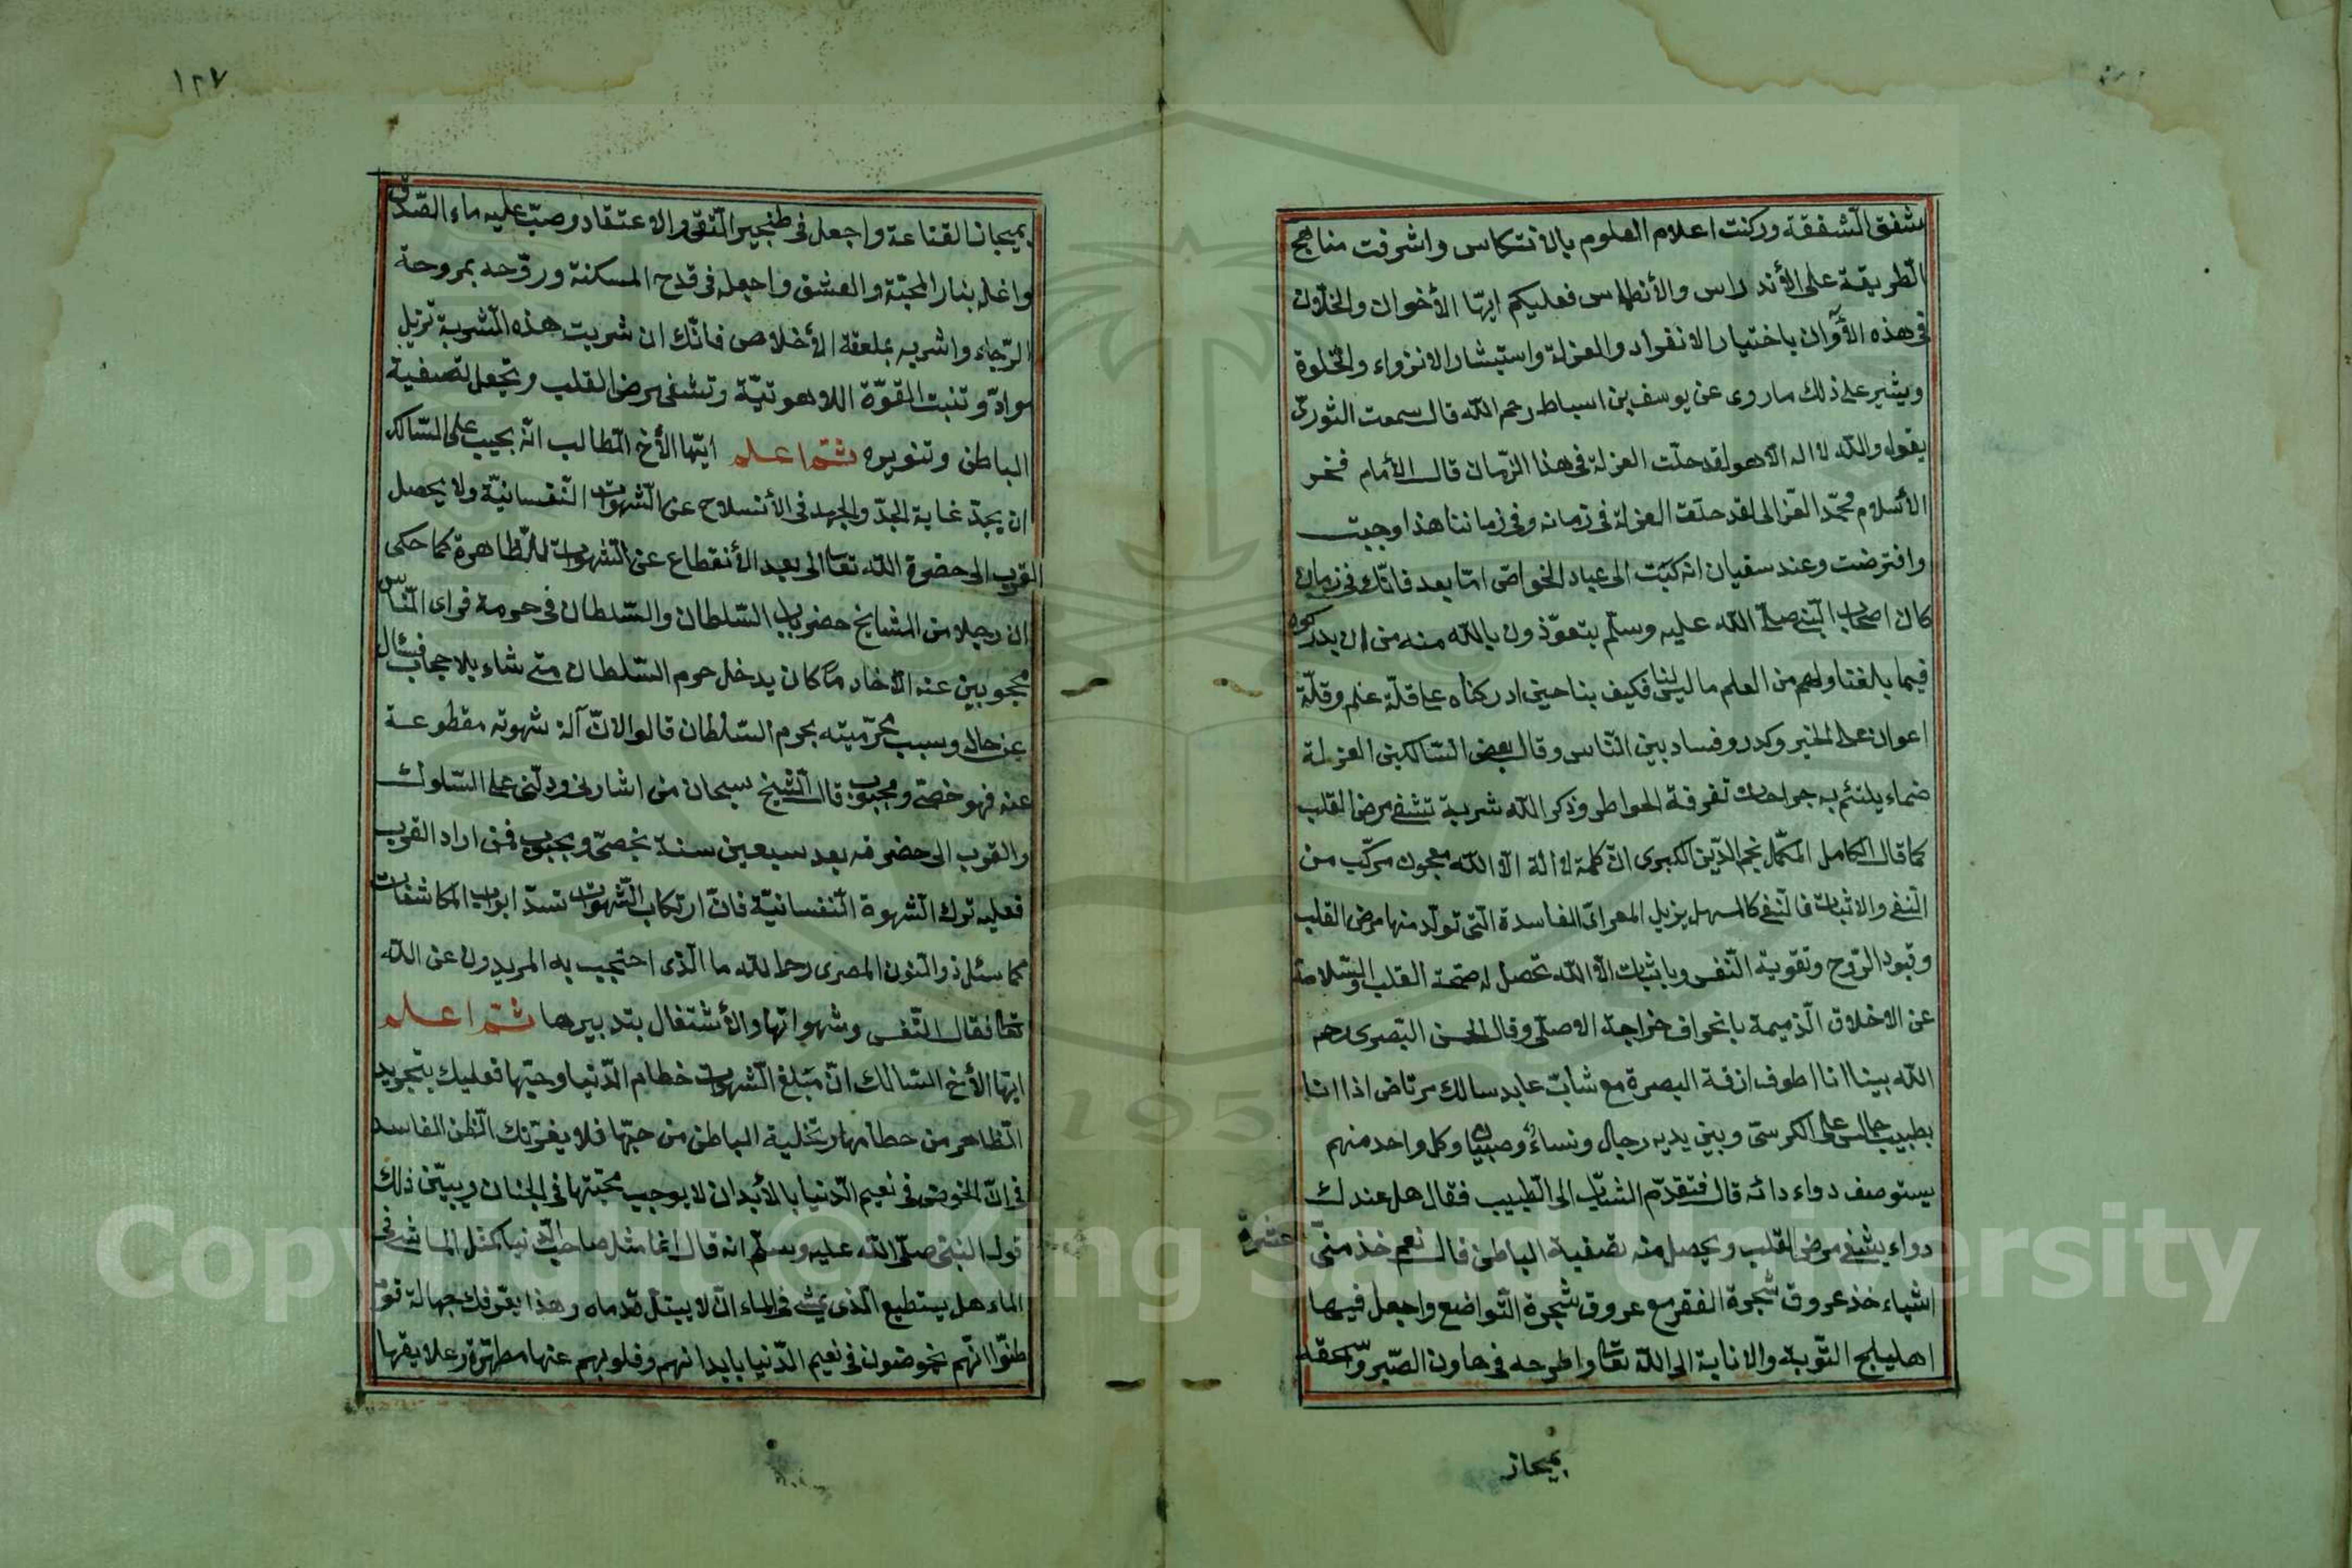 شفق الشفقة وركنت اعلام العلوم بالانتكاس واشرفت مناهج
الطريقة على الأندراس والأنطماس فعليكم ايها الأخوان والخلّان
فى هذه الأوآن باختيار الانفراد والعزلة واستبشار الانزواء والخلوة
ويشير على ذلك ماروى عن يوسف بن اسباط رحم الله قال سمعت الثورى
يقول والله لا اله الا هو لقد حلّت العزلة فى هذا الزمان قال الأمام فخر
الأسلام محمّد الغزالى لقد حلّت العزلة فى زمانه وفى زماننا هذا وجبت
وافترضت وعند سفيان انه كتب الى عباد الخواص امّا بعد فانّك فى زمان
كان اصحاب النبى صلى الله عليه وسلم يتعوّذون بالله منه من ان يدركوه
فيما بلغنا ولهم من العلم ما ليس لنا فكيف بنا حين ادركناه على قلّة علم وقلّة
اعوان على الخير وكدر وفساد بين الناس وقال بعض السالكين العزلة
ضماء يلتئم به جراحات تفرقة الخواطر وذكر الله شربة تشفى مرض القلب
كما قال الكامل المكمّل نجم الدّين الكبرى انّ كلمة لا اله الا الله معجون مركّب من
النفى والاثبات فالنفى كالمسهل يزيل المواد الفاسدة التى تولّد منها مرض القلب
وقيود الروح وتقوية النّفس وباثبات الا الله تحصل له صحّة القلب والسّلامة
عن الاخلاق الذميمة بانحراف مزاجه الاصلى وقال الحسن البصرى رحم
الله بينا انا اطوف ازقة البصرة مع شابّ عابد سالك مرتاض اذا انا
بطبيب جالس على الكرسى وبين يديه رجال ونساء وصبيان وكل واحد منهم
يستوصف دواء دائه قال فتقدّم الشاب الى الطبيب فقال هل عندك
دواء يشفى مرض القلب ويحصل منه تصفية الباطن قال نعم خذ منّى عشرة
اشياء خذ عروق شجرة الفقر مع عروق شجرة التّواضع واجعل فيها
اهليلج التّوبة والانابة الى الله تعا واطرحه فى هاون الصّبر وّاسحقه
بميجانـ
١٢٧
بميجان القناعة واجعل فى طنجير التّقى والاعتقاد وصبّ عليه ماء الصّدق
واغله بنار المحبّة والعشق واجعله فى قدح المسكنة وروّحه بمروحة
الرّجاء واشربه بملعقة الأخلاص فانّك ان شربت هذه الشربة تزيل
موادّ وتنبت القوّة اللاهوتيّة وتشفى مرض القلب وتجعل تصفية
الباطن وتنويره ثمّ اعلم ايّها الأخ الطالب انّه يجب على السّالك
ان يجدّ غاية الجدّ والجهد فى الأنسلاح عن الشهوات النّفسانيّة ولا يحصل
القرب الى حضرة الله تعاالى بعد الأنقطاع عن الشهوات الظاهرة كما حكى
ان رجلا من المشايخ حضر باب السّلطان والسّلطان فى حرمه فراى النّاس
محجوبين عنه الا خادما كان يدخل حرم السّلطان متى شاء بلا حجاب فسئال
عن حاله وسبب محرّميته بحرم السّلطان قالوا لانّ آلة شهوته مقطوعة
عنه فهو خصىّ ومجبوب قال الشيخ سبحان من اشارنى ودلّنى على السّلوك
والقرب الى حضرته بعد سبعين سنة بخصىّ ومجبوب فمن اراد القرب
فعليه ترك الشهوة النّفسانيّة فانّ ارتكاب الشّهوات تسدّ ابواب المكاشفات
كما سئل ذوالنون المصرى رحمالله ما الّذى احتجب به المريدون عن الله
تعا فقال النّفس وشهواتها والأشتغال بتدبيرها ثمّ اعلم
ايّها الأخ السّالك انّ مبلغ الشّهوات حطام الدّنيا وحبّها فعليك بتجريد
الظاهر من حطامها وتخلية الباطن من حبّها فلا يغرّنك الظّن الفاسد
فى انّ الخوض فى نعيم الدّنيا بالأبدان لا يوجب محبّتها فى الجنان ويبيّن ذلك
قول النبىّ صلّى الله عليه وسلّم انه قال انّما مثل صاحب الدّنيا كمثل الماشى فى
الماء هل يستطيع الّذى يمشى فى الماء انّ لا يبتلّ قدماه وهذا يعرّفك جهالة قوم
ظنّوا انّهم يخوضون فى نعيم الدّنيا بابدانهم وقلوبهم عنها مطهّرة وعلايقها
1957
Copyright © King Saud University